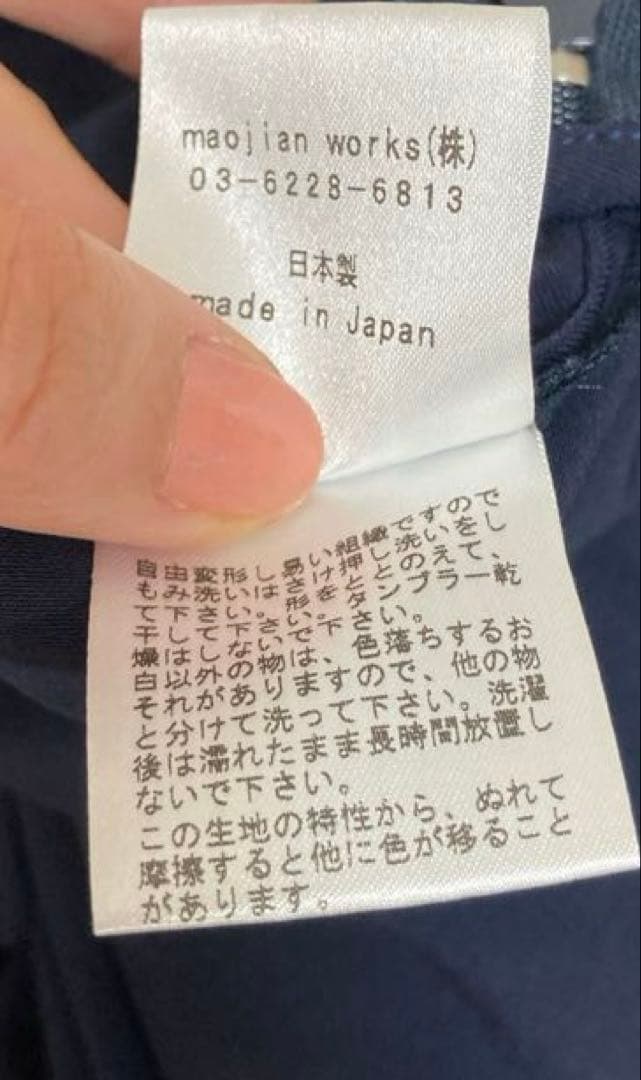 maojian works(株)
03-6228-6813
日本製
made in Japan
自由変形し易い組織ですので
もみ洗いはさけ押し洗いをし
て下さい。形をととのえて、
干して下さい。タンブラー乾
燥はしないで下さい。
白以外の物は、色落ちするお
それがありますので、他の物
と分けて洗って下さい。洗濯
後は濡れたまま長時間放置し
ないで下さい。
この生地の特性から、ぬれて
摩擦すると他に色が移ること
があります。